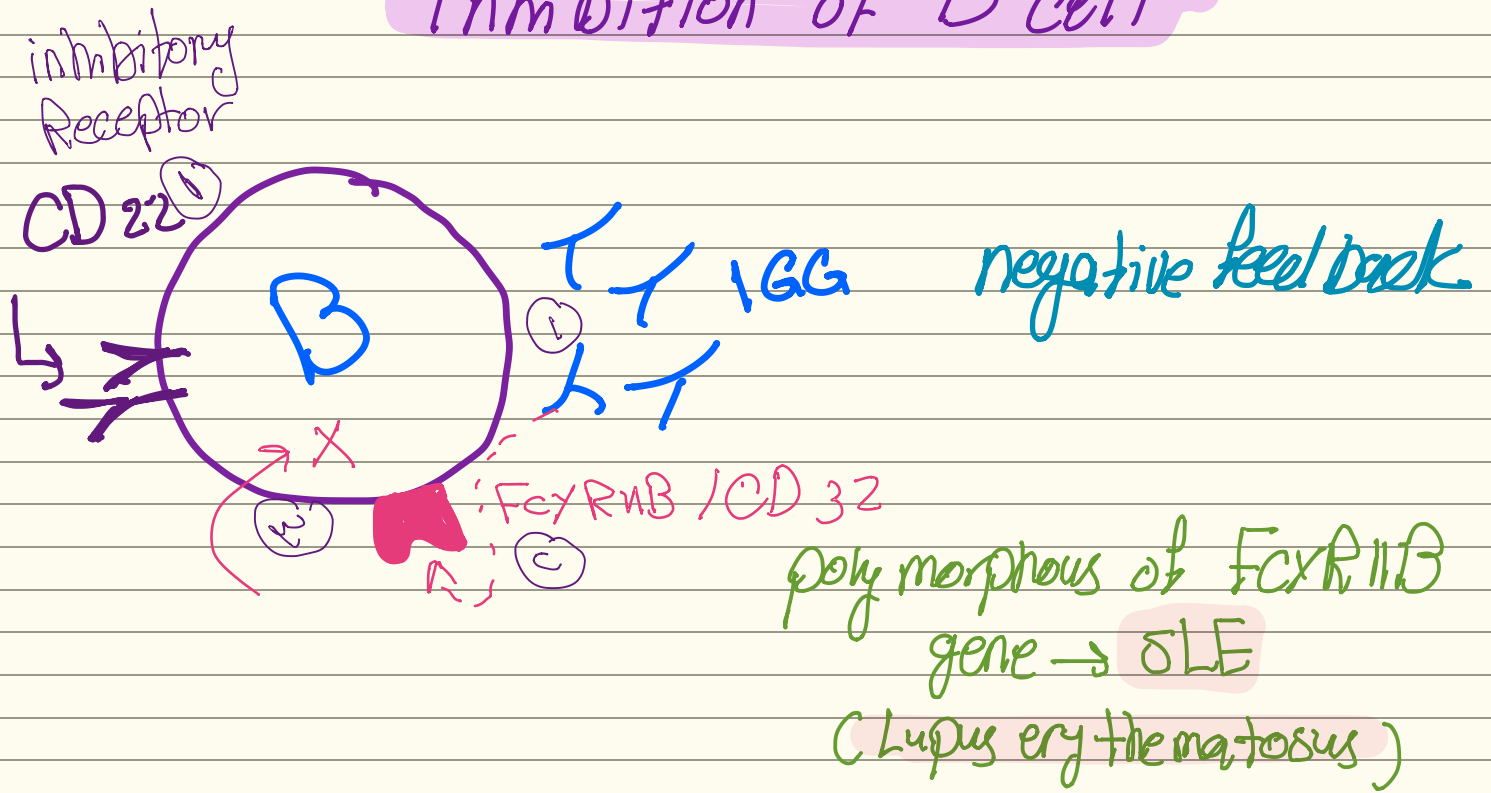 Inhibition of B cell
inhibitory
Receptor
CD 22
B
IGG
negative feedback
X
FcγRIIB / CD 32
polymorphous of FcγRIIB
gene → SLE
(Lupus erythematosus)